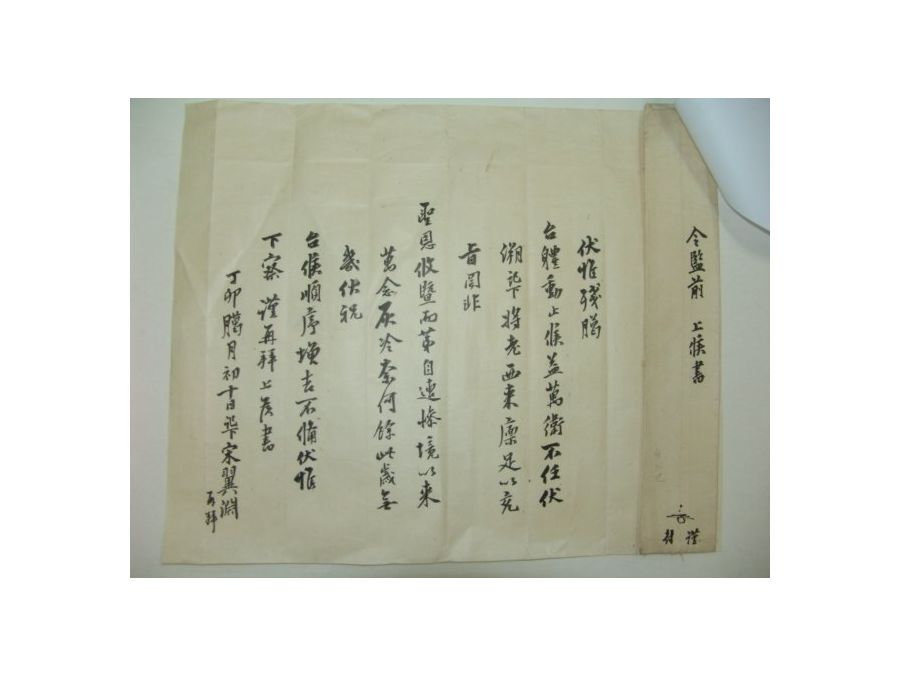 令監前 上候書
謹封
伏惟殘臘
台體動止候益萬衛不任伏
溯記下將老西來廩足以充
旨罔非
聖恩攸曁而第自遭慘境以來
萬念灰冷奈何餘此歲無
幾伏祝
台候順序增吉不備伏惟
下察 謹再拜上候書
丁卯臘月初十日記下宋翼淵
再拜